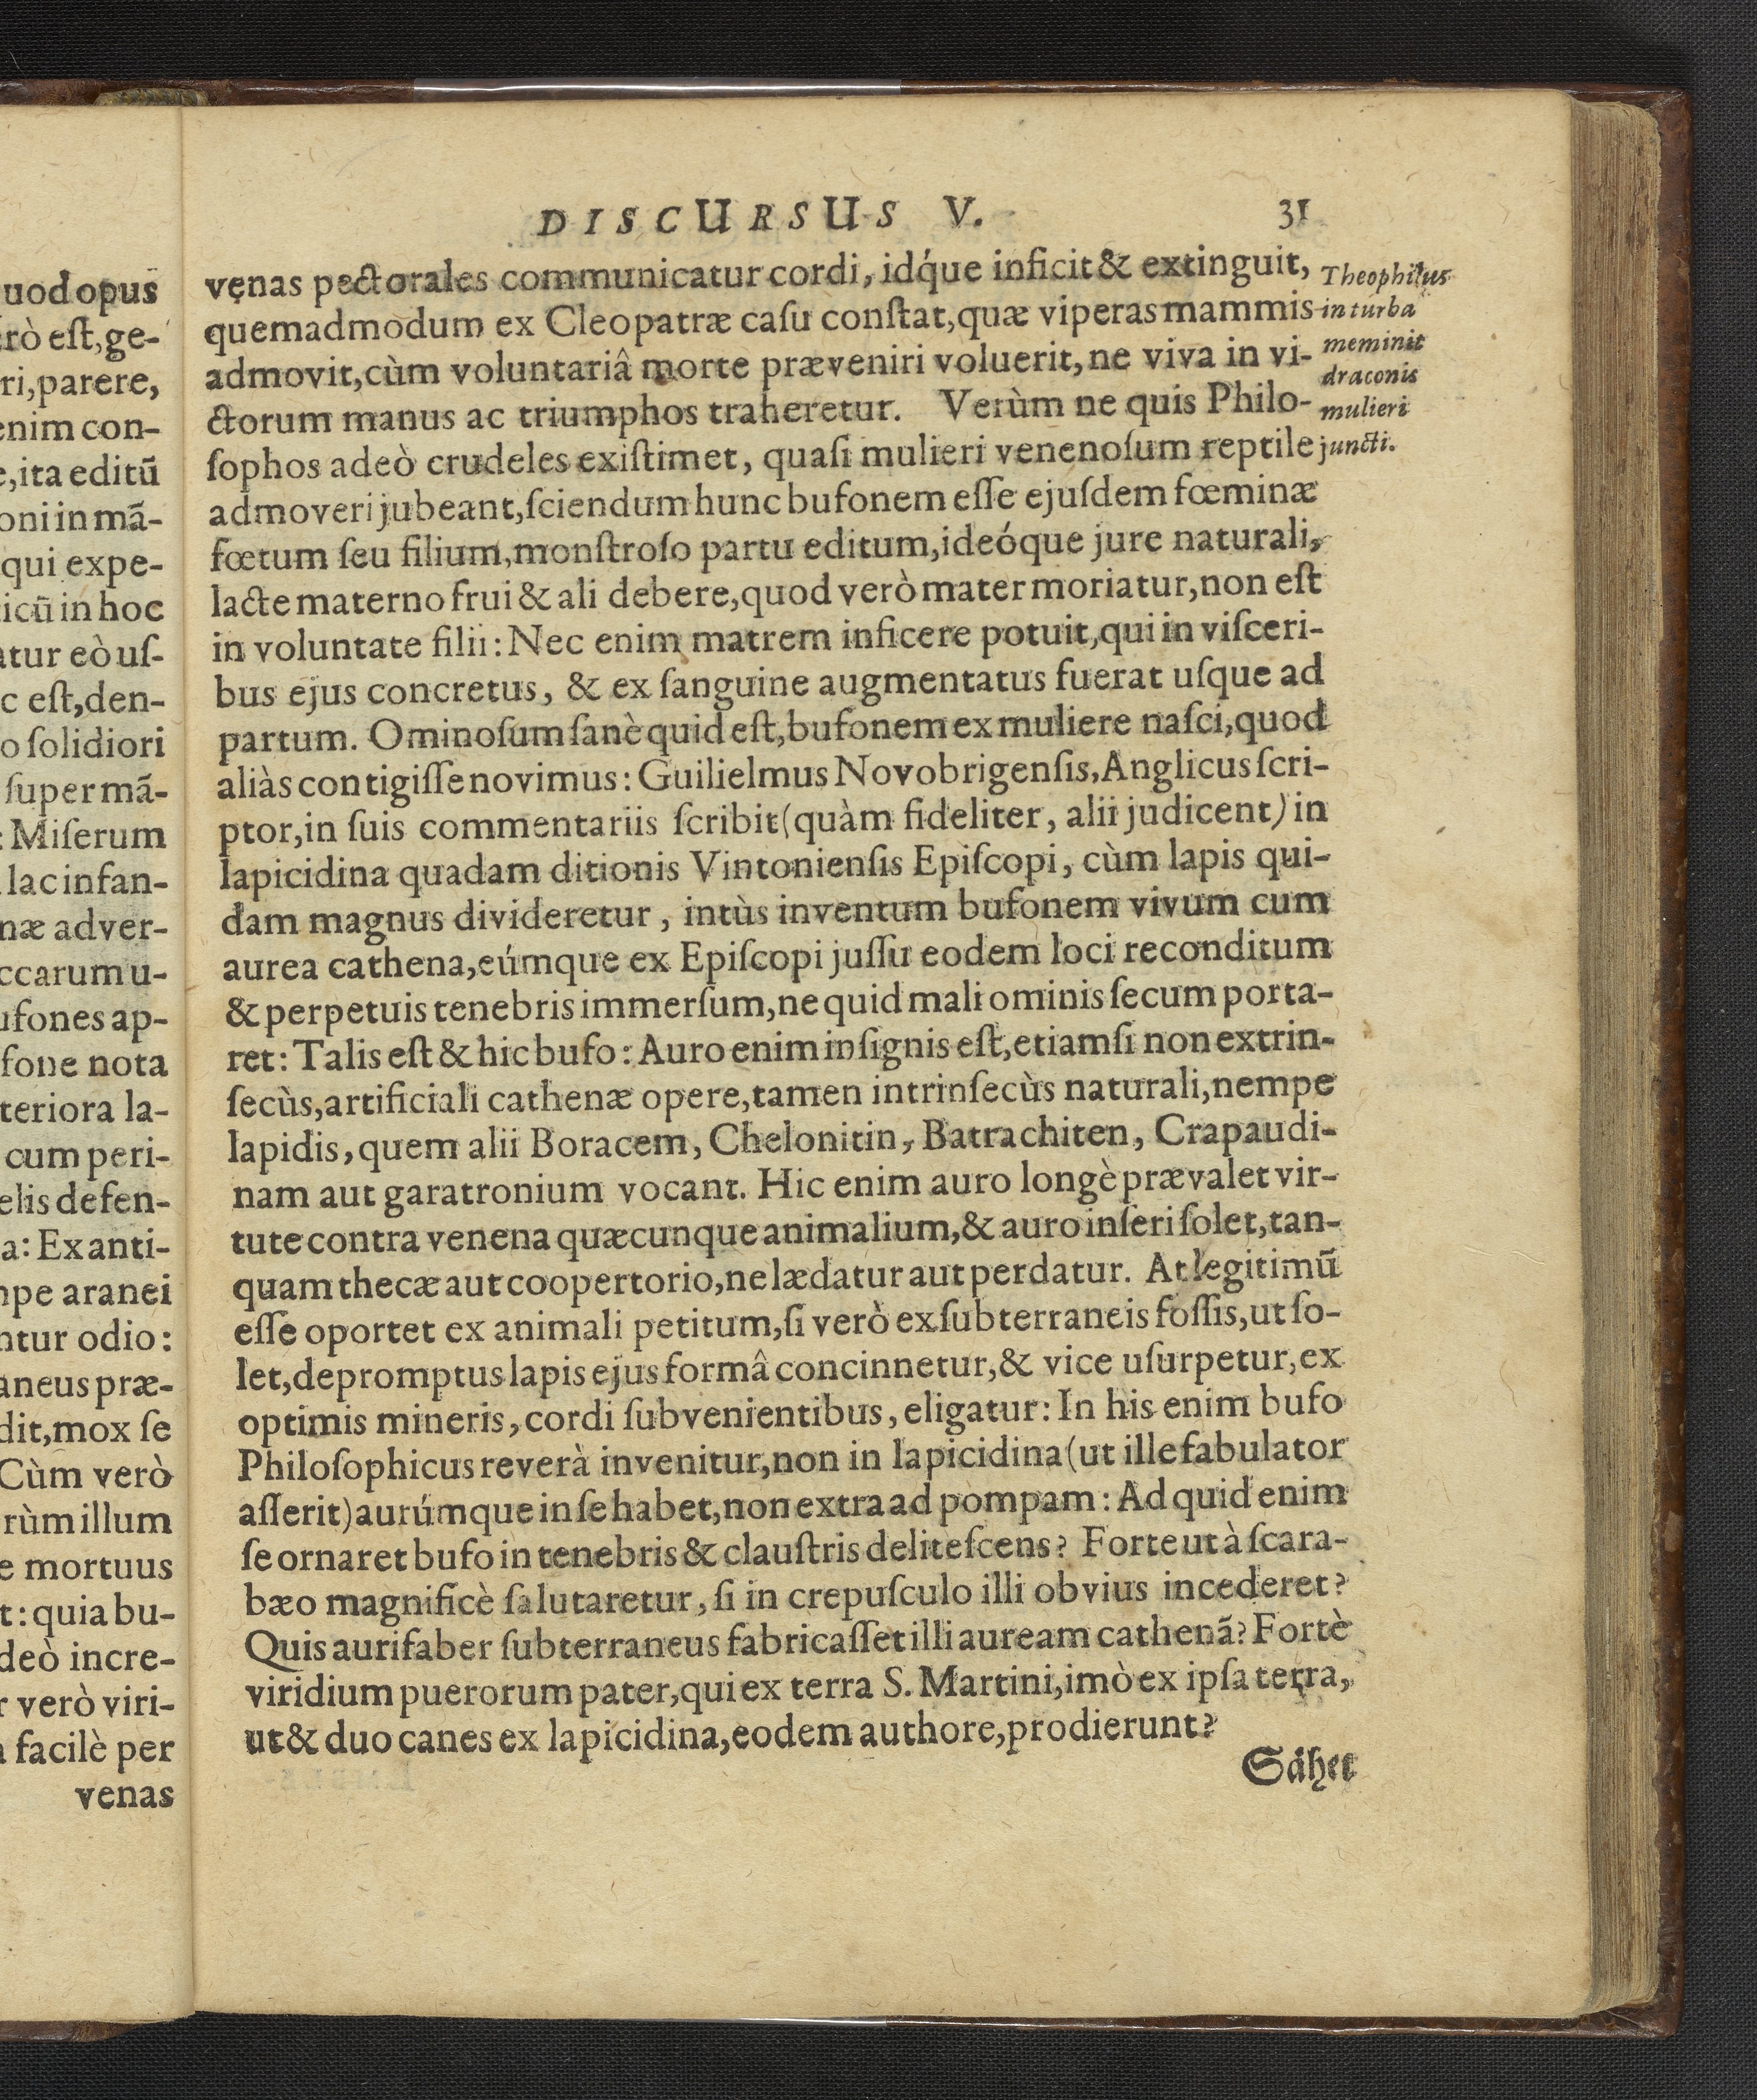 uod opus
rò eſt, ge-
ri, parere,
enim con-
e, ita editū
oni in mā-
qui expe-
icū in hoc
atur eò uſ-
c eſt, den-
o ſolidiori
ſuper mā-
: Miſerum
lac infan-
næ adver-
ccarum u-
ufones ap-
fone nota
teriora la-
cum peri-
elis defen-
a: Ex anti-
npe aranei
ntur odio:
aneus præ-
dit, mox ſe
Cùm verò
rùm illum
e mortuus
t: quia bu-
deò incre-
r verò viri-
facilè per
venas
DISCURSUS V. 31
venas pectorales communicatur cordi, idq́ue inficit & extinguit,
quemadmodum ex Cleopatræ caſu conſtat, quæ viperas mammis
admovit, cùm voluntariâ morte præveniri voluerit, ne viva in vi-
ctorum manus ac triumphos traheretur. Verùm ne quis Philo-
ſophos adeò crudeles exiſtimet, quaſi mulieri venenoſum reptile
admoveri jubeant, ſciendum hunc bufonem eſſe ejuſdem fœminæ
fœtum ſeu filium, monſtroſo partu editum, ideóque jure naturali,
lacte materno frui & ali debere, quod verò mater moriatur, non eſt
in voluntate filii: Nec enim matrem inficere potuit, qui in viſceri-
bus ejus concretus, & ex ſanguine augmentatus fuerat uſque ad
partum. Ominoſum ſanè quid eſt, bufonem ex muliere naſci, quod
aliàs contigiſſe novimus: Guilielmus Novobrigenſis, Anglicus ſcri-
ptor, in ſuis commentariis ſcribit (quàm fideliter, alii judicent) in
lapicidina quadam ditionis Vintonienſis Epiſcopi, cùm lapis qui-
dam magnus divideretur, intùs inventum bufonem vivum cum
aurea cathena, eúmque ex Epiſcopi juſſu eodem loci reconditum
& perpetuis tenebris immerſum, ne quid mali ominis ſecum porta-
ret: Talis eſt & hic bufo: Auro enim inſignis eſt, etiamſi non extrin-
ſecùs, artificiali cathenæ opere, tamen intrinſecùs naturali, nempe
lapidis, quem alii Boracem, Chelonitin, Batrachiten, Crapaudi-
nam aut garatronium vocant. Hic enim auro longè prævalet vir-
tute contra venena quæcunque animalium, & auro inſeri ſolet, tan-
quam thecæ aut coopertorio, ne lædatur aut perdatur. At legitimū
eſſe oportet ex animali petitum, ſi verò ex ſubterraneis foſſis, ut ſo-
let, depromptus lapis ejus formâ concinnetur, & vice uſurpetur, ex
optimis mineris, cordi ſubvenientibus, eligatur: In his enim bufo
Philoſophicus reverà invenitur, non in lapicidina (ut ille fabulator
aſſerit) aurúmque in ſe habet, non extra ad pompam: Ad quid enim
ſe ornaret bufo in tenebris & clauſtris deliteſcens? Forte ut à ſcara-
bæo magnificè ſalutaretur, ſi in crepuſculo illi obvius incederet?
Quis aurifaber ſubterraneus fabricaſſet illi auream cathenā? Fortè
viridium puerorum pater, qui ex terra S. Martini, imò ex ipſa terra,
ut & duo canes ex lapicidina, eodem authore, prodierunt?
Sähet
Theophilus
in turba
meminit
draconis
mulieri
juncti.